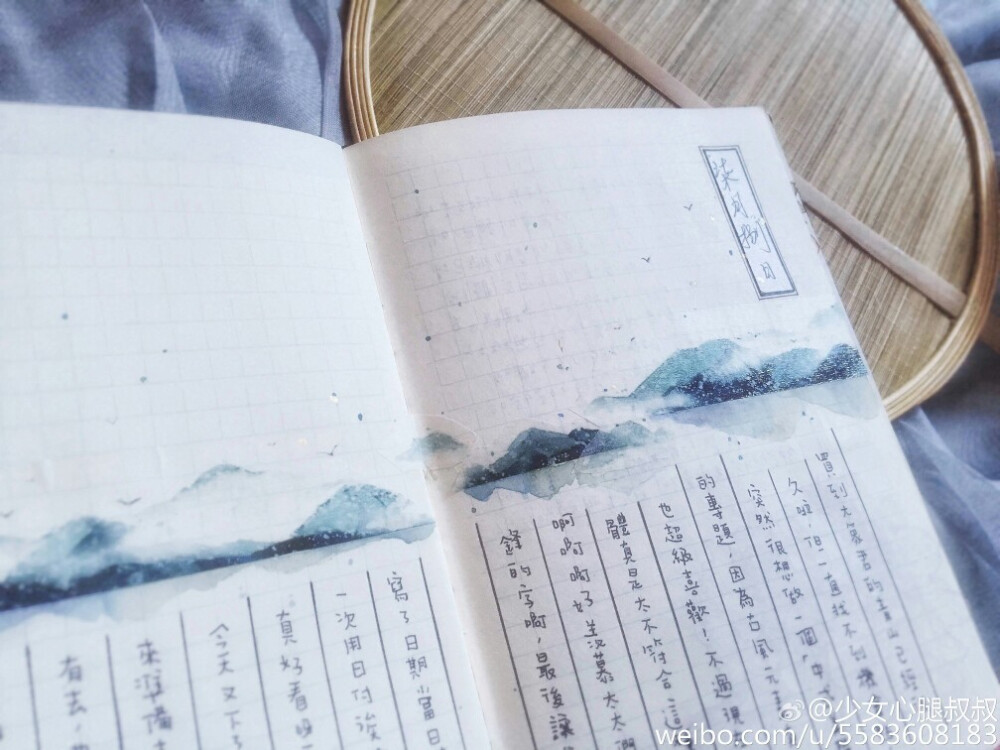 柒月捌日
買到大象君的青山已經
久啦,但一直找不到
突然很想做一個「中
的專題,因為古風元
也超級喜歡!不過現
體真是太不符合這
啊啊啊好羨慕太太
錄的字啊,最後讓
寫了日期當日
一次用日付
真好看
今天又下
來準備
有去,
@少女心腿叔叔
weibo.com/u/5583608183